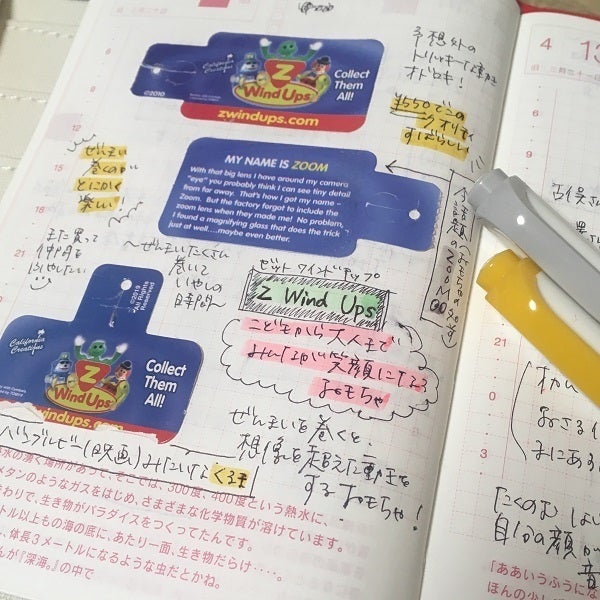 California Creations
©2010
Z
Wind Ups
Collect
Them
All!
zwindups.com
予想外の
トリッキーな動き
オドロキ!
¥550でこの
クオリティ
すばらしい
4
MY NAME IS ZOOM
With that big lens I have around my camera
"eye" you probably think I can see tiny detail
from far away. That's how I got my name –
Zoom. But the factory forgot to include the
zoom lens when they made me! No problem,
I found a magnifying glass that does the trick
just as well....maybe even better.
ぜんまい
巻くのが
とにかく
楽しい
また買って
仲間を
ふやしたい
〜ぜんまいたくさん
巻いて
いやしの
時間〜
ゼットワインドアップ
Z Wind Ups
こどもから大人まで
みんなが笑顔になる
おもちゃ
ぜんまいを巻くと、
想像を超えた動きを
するおもちゃ!
©2010
All Rights
Reserved
California Creations
Z
Wind Ups
Collect
Them
All!
windups.com
バンブルビー(映画)みたいな
くるま
があって、そこでは、300度、400度という熱水に、
メタンのようなガスをはじめ、さまざまな化学物質が溶けています。
わりで、生き物がパラダイスをつくってたんです。
トル以上もの海の底に、あたり一面、生き物だらけ‥‥。
、体長3メートルになるような虫だとかね。
んが『深海。』の中で
自分の顔が
「ああいうふうにな
ほんの少し